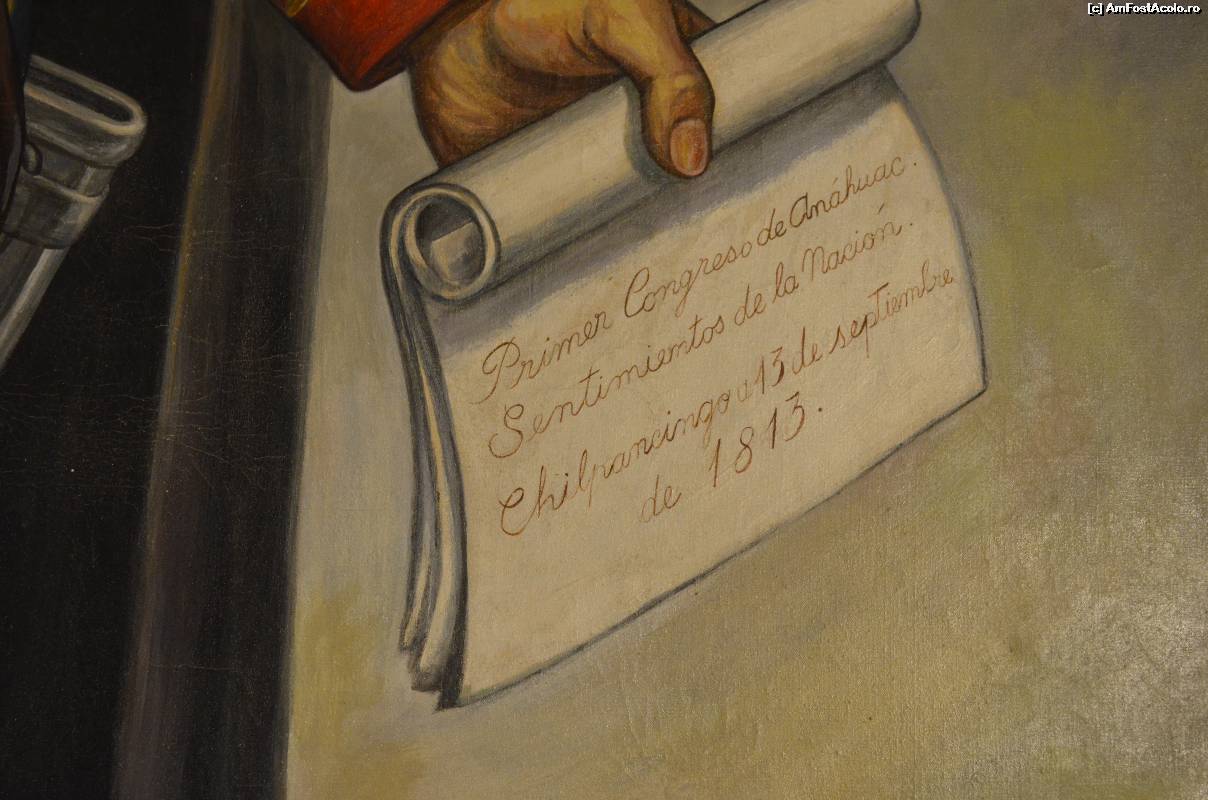 [c] AmFostAcolo.ro
Primer Congreso de Anáhuac.
Sentimientos de la Nación.
Chilpancingo a 13 de septiembre
de 1813.